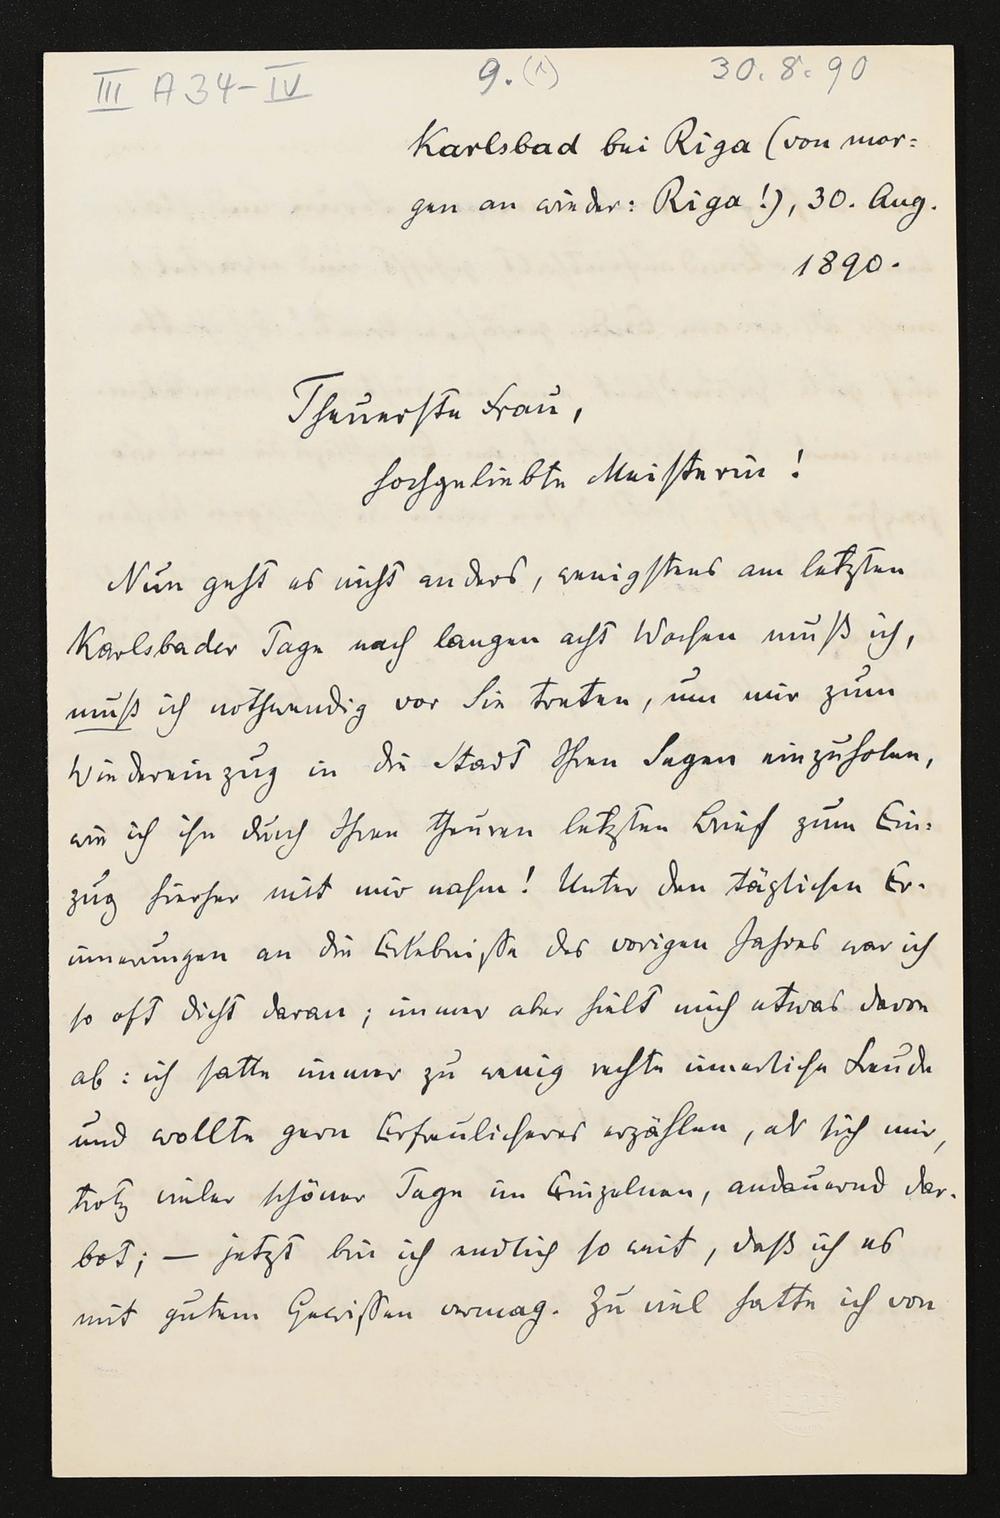 III A 34-IV 9. (1) 30. 8. 90
Karlsbad bei Riga (von mor=
gen an wieder: Riga!), 30. Aug.
1890.
Theuerste Frau,
hochgeliebte Meisterin!
Nun geht es nicht anders, wenigstens am letzten
Karlsbader Tage nach langen acht Wochen muß ich,
muß ich nothwendig vor Sie treten, um mir zum
Wiedereinzug in die Stadt Ihren Segen einzuholen,
wie ich ihn durch Ihren theuren letzten Brief zum Ein=
zug hierher mit mir nahm! Unter den täglichen Er-
innerungen an die Erlebnisse des vorigen Jahres war ich
so oft dicht daran; immer aber hielt mich etwas davon
ab: ich hatte immer zu wenig rechte innerliche Freude
und wollte gern Erfreulicheres erzählen, als sich mir,
trotz vieler schöner Tage im Einzelnen, andauernd dar-
bot; — jetzt bin ich endlich so weit, daß ich es
mit gutem Gewissen vermag. Zu viel hatte ich von